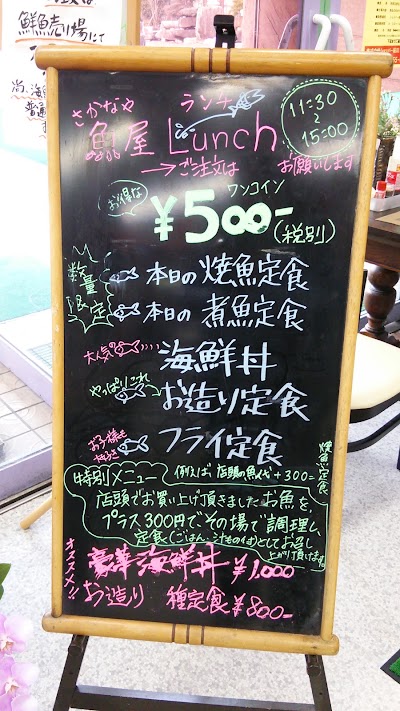 鮮魚売り場にて
尚、海
普通
さかなや
ランチ
魚屋 Lunch
11:30
~
15:00
→ご注文は
お願いします
お得な
ワンコイン
¥500-
(税別)
数量限定
本日の焼魚定食
本日の煮魚定食
大人気
海鮮丼
やっぱりこれ
お造り定食
お子様も
フライ定食
特別メニュー
例えば、店頭の魚代+300=
焼魚定食
店頭でお買い上げ頂きましたお魚を
プラス300円でその場で調理し、
定食(ごはん・汁もの付)としてお召し
上がり頂けます
オススメ!!
豪華海鮮丼 ¥1,000
お造り 種定食¥800-